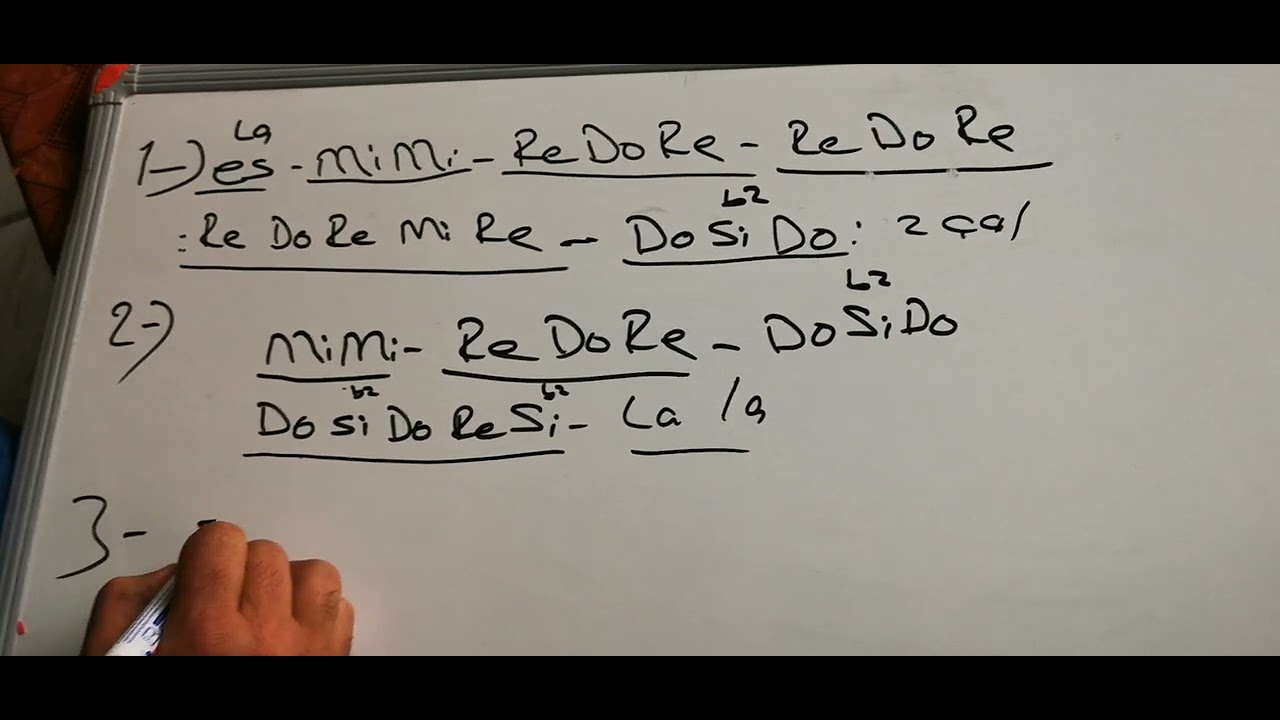 La
1-) es - MiMi - ReDoRe - ReDoRe
b2
: Re Do Re Mi Re - DoSiDo : 2 çal
b2
2-) MiMi - ReDoRe - DoSiDo
b2 b2
DoSiDoReSi - La la
3-